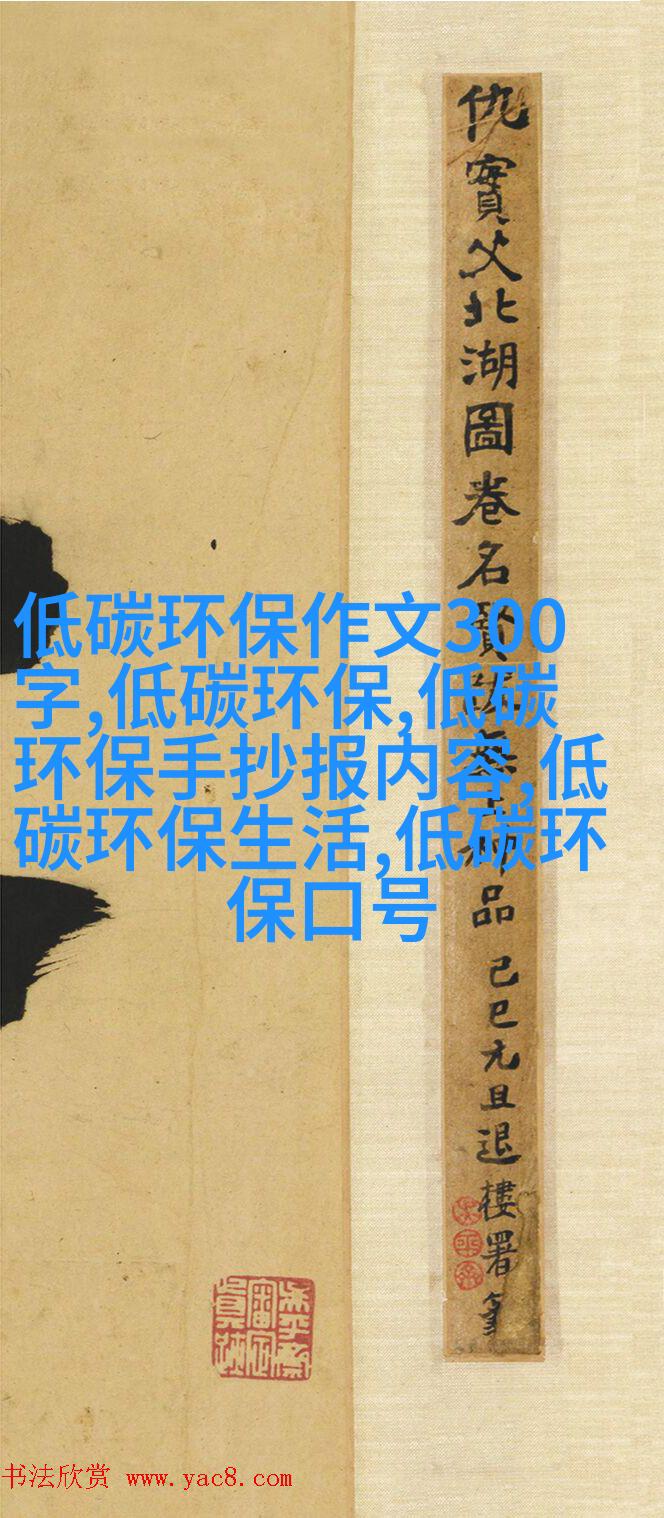 仇實父北湖圖卷名賢 品 己巳元旦退樓署
低碳环保作文300
字,低碳环保,低碳
环保手抄报内容,低
碳环保生活,低碳环
保口号
书法欣赏 www.yac8.com